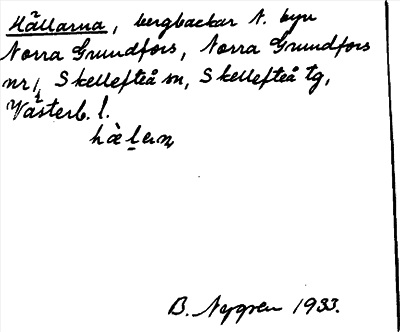 Hällarna, bergbackar N. byn
Norra Grundfors, Norra Grundfors
nr 1, Skellefteå sn, Skellefteå tg,
Västerb. l.
hàlen
B. Nygren 1933.